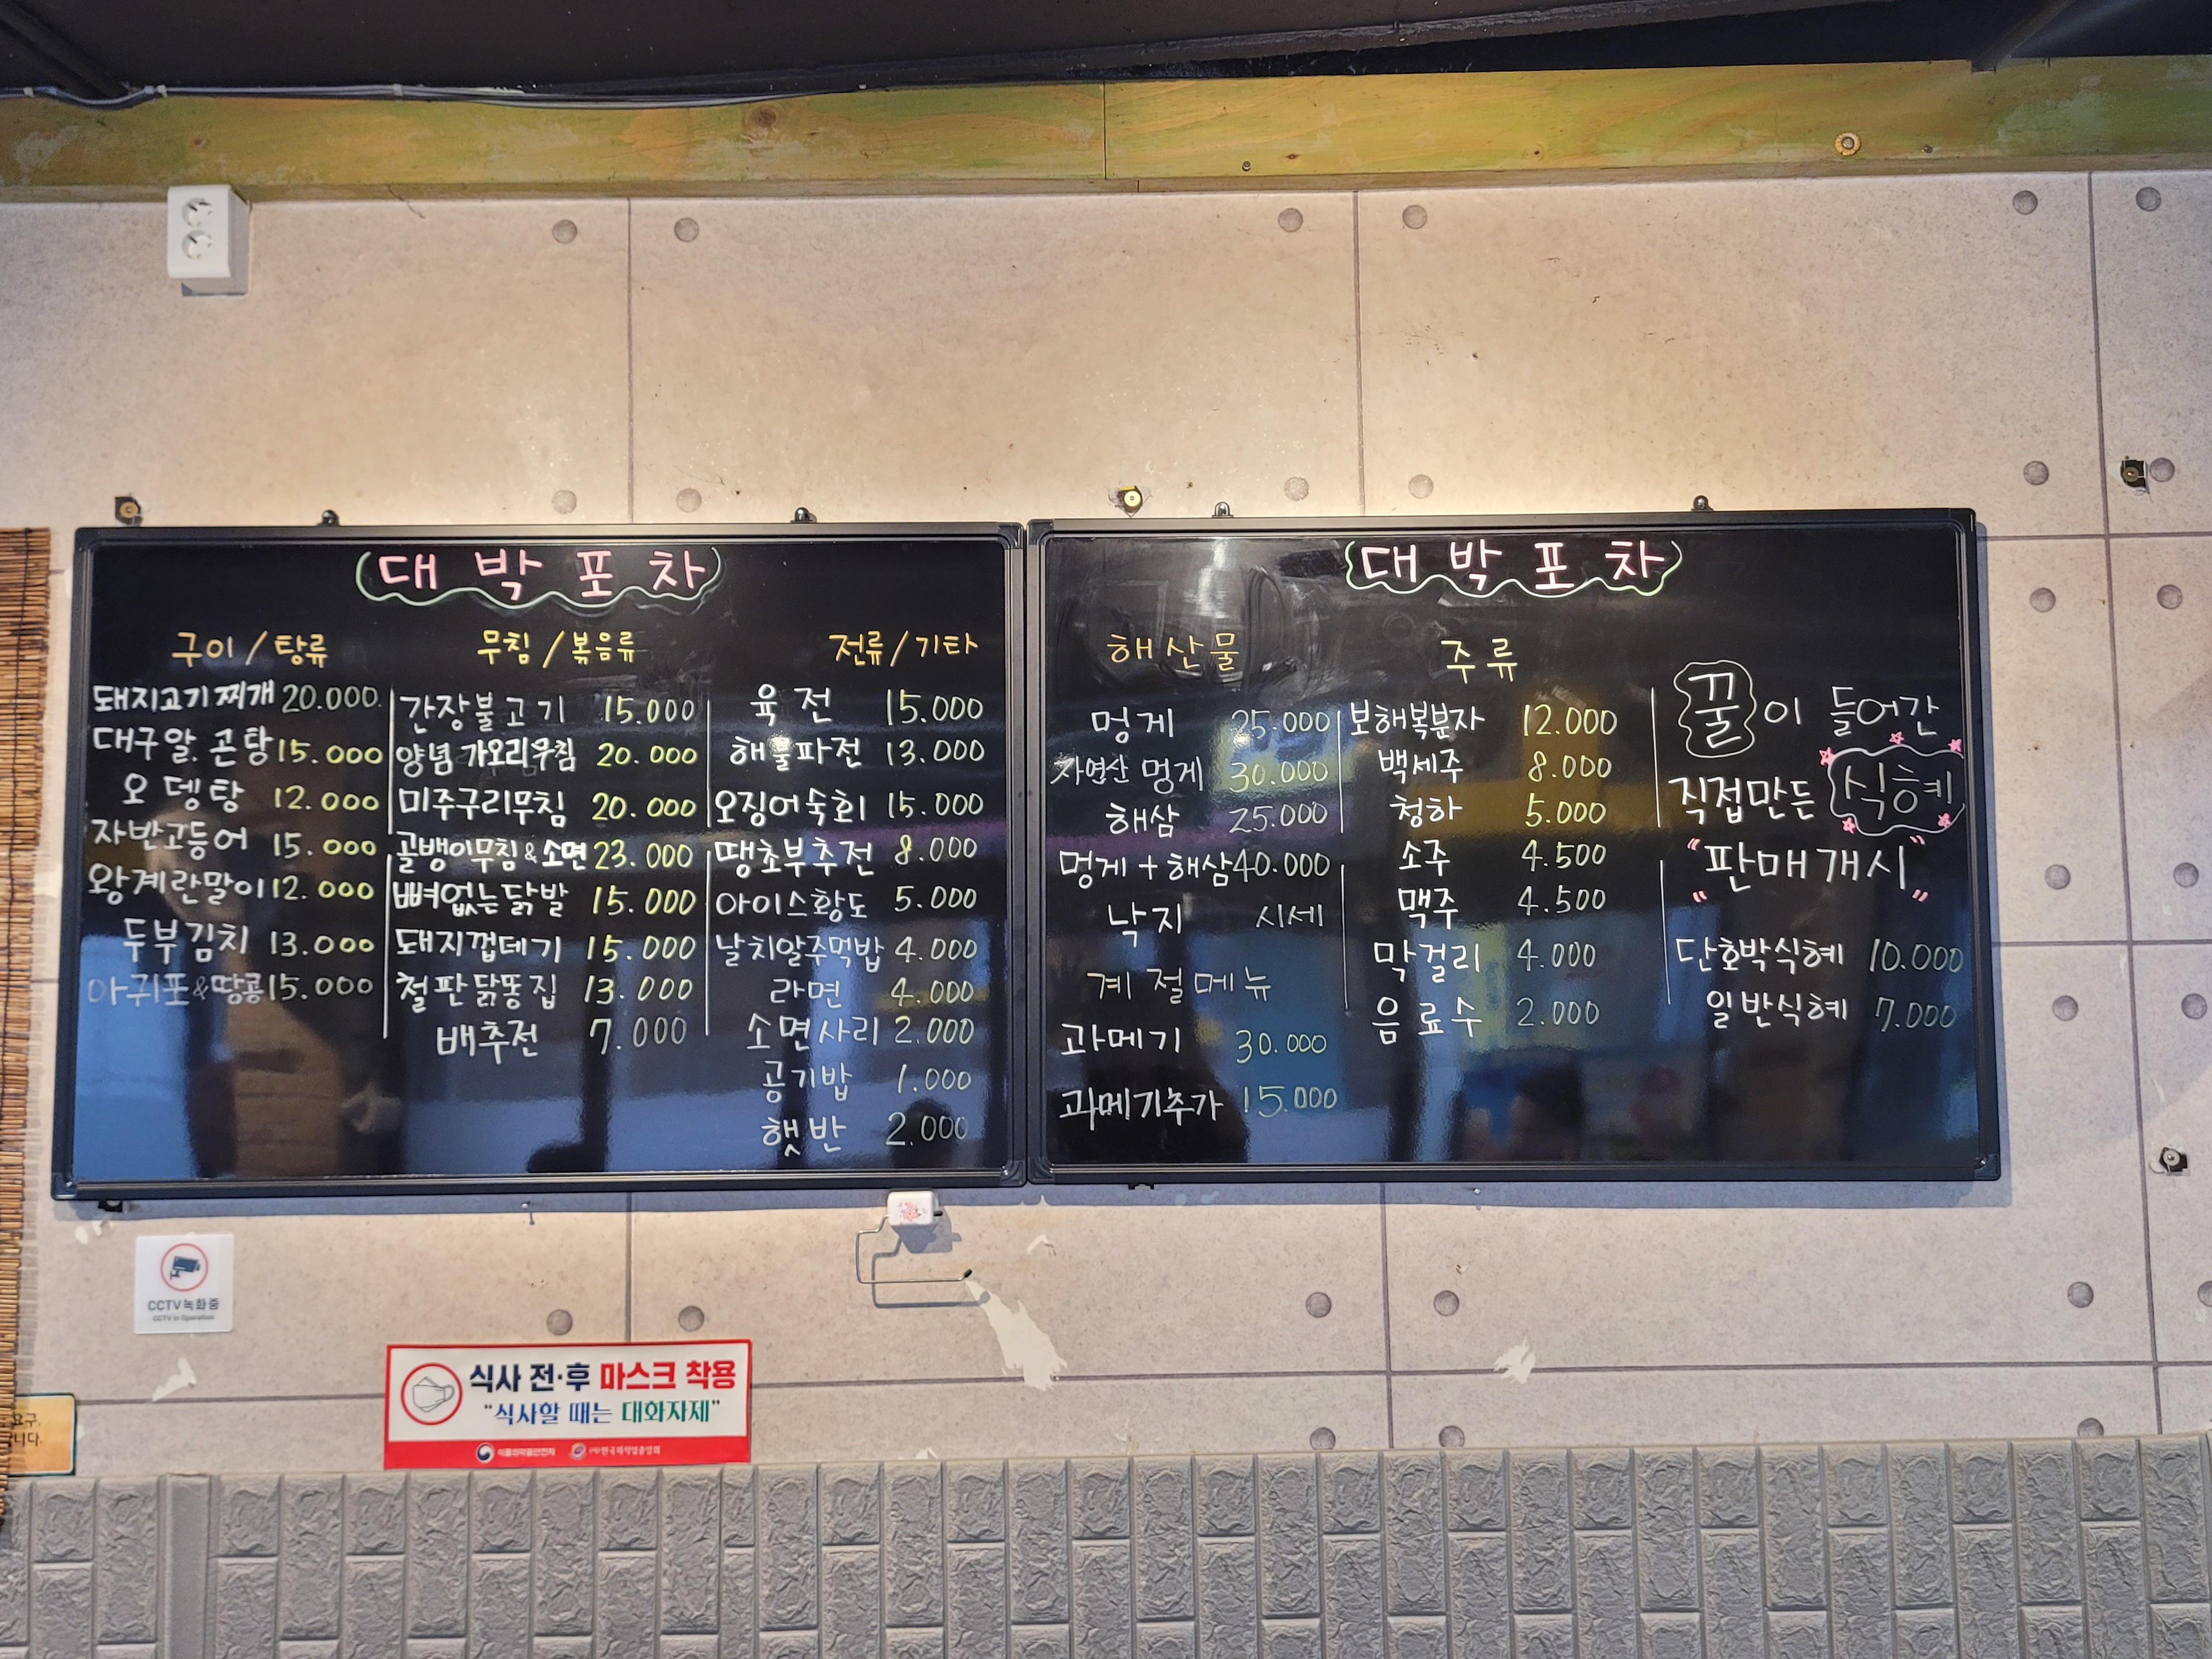 대박포차
구이/탕류
돼지고기찌개 20.000
대구알.곤탕 15.000
오뎅탕 12.000
자반고등어 15.000
왕계란말이 12.000
두부김치 13.000
아귀포&땅콩 15.000
무침/볶음류
간장불고기 15.000
양념가오리무침 20.000
미주구리무침 20.000
골뱅이무침&소면 23.000
뼈없는닭발 15.000
돼지껍데기 15.000
철판닭똥집 13.000
배추전 7.000
전류/기타
육전 15.000
해물파전 13.000
오징어숙회 15.000
땡초부추전 8.000
아이스황도 5.000
날치알주먹밥 4.000
라면 4.000
소면사리 2.000
공기밥 1.000
햇반 2.000
대박포차
해산물
멍게 25.000
자연산 멍게 30.000
해삼 25.000
멍게+해삼 40.000
낙지 시세
계절메뉴
과메기 30.000
과메기추가 15.000
주류
보해복분자 12.000
백세주 8.000
청하 5.000
소주 4.500
맥주 4.500
막걸리 4.000
음료수 2.000
꿀이 들어간
직접만든 식혜
"판매개시"
단호박식혜 10.000
일반식혜 7.000
CCTV녹화중
CCTV in Operation
식사 전·후 마스크 착용
"식사할 때는 대화자제"
식품의약품안전처
요구,
니다.